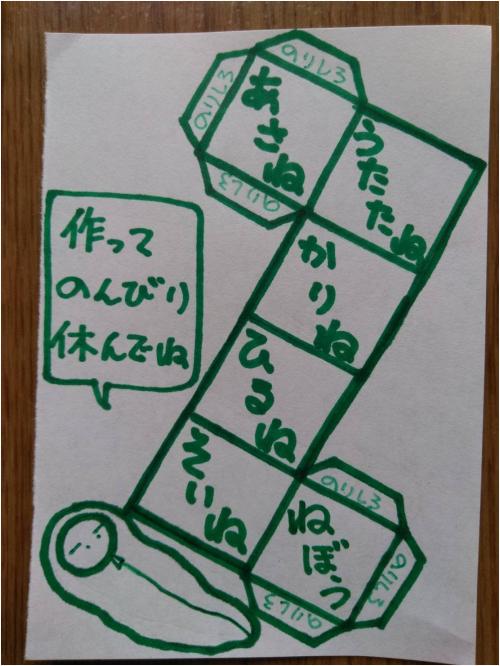 のりしろ
のりしろ
あさね
のりしろ
うたたね
かりね
ひるね
そいね
のりしろ
ねぼう
のりしろ
のりしろ
作って
のんびり
休んでね